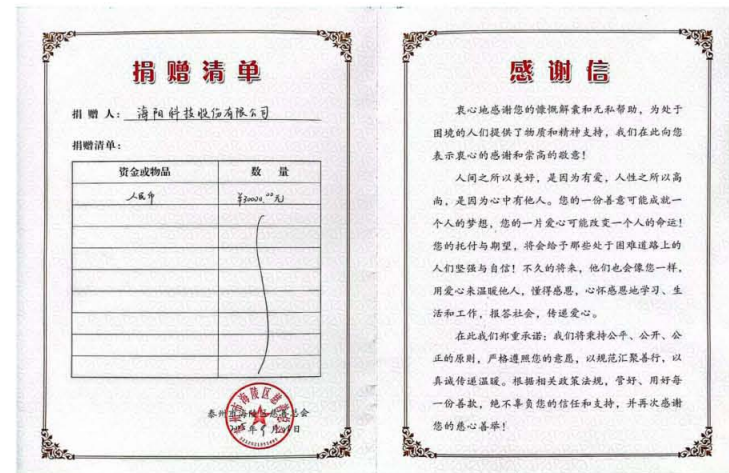 捐赠清单
捐赠人：海阳科技股份有限公司
捐赠清单：
资金或物品 数量
人民币 ¥30000.00元
泰州市海陵区慈善总会
感谢信
衷心地感谢您的慷慨解囊和无私帮助，为处于
困境的人们提供了物质和精神支持，我们在此向您
表示衷心的感谢和崇高的敬意！
人间之所以美好，是因为有爱，人性之所以高
尚，是因为心中有他人。您的一份善意可能成就一
个人的梦想，您的一片爱心可能改变一个人的命运！
您的托付与期望，将会给予那些处于困难道路上的
人们坚强与自信！不久的将来，他们也会像您一样，
用爱心来温暖他人，懂得感恩，心怀感恩地学习、生
活和工作，报答社会，传递爱心。
在此我们郑重承诺：我们将秉持公平、公开、公
正的原则，严格遵照您的意愿，以规范汇聚善行，以
真诚传递温暖。根据相关政策法规，管好、用好每
一份善款，绝不辜负您的信任和支持，并再次感谢
您的慈心善举！